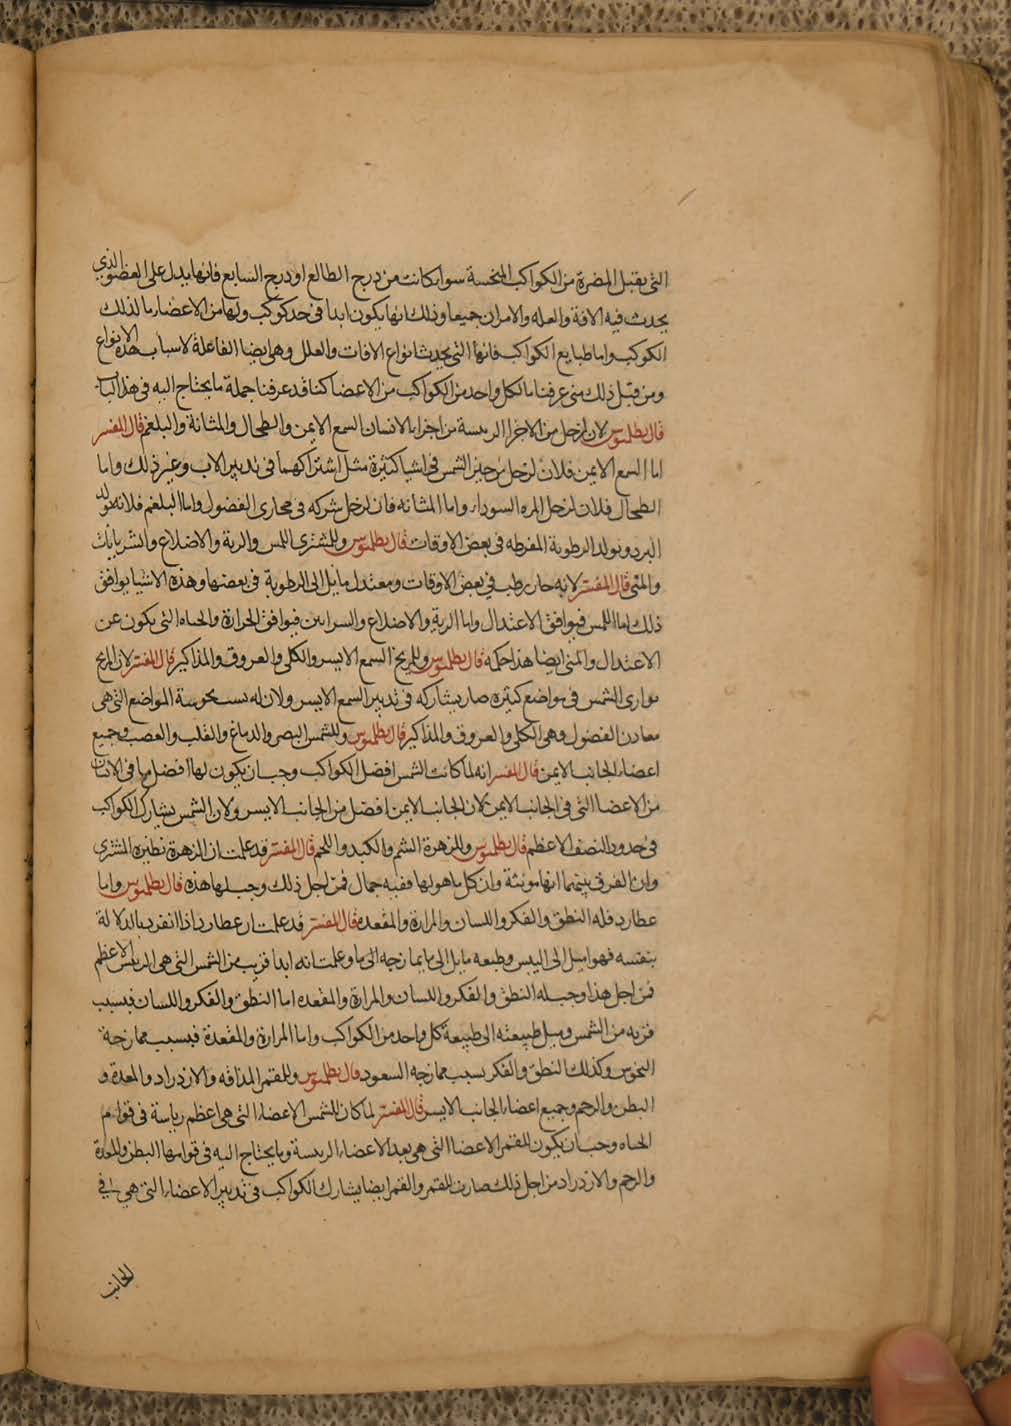 التى يقبل المضرة من الكواكب المنحسة سوا كانت من درج الطالع او درج السابع فانها يدل على العضو الذي
يحدث فيه الافة والعله والامران جميعا وذلك انها يكون ابدا فى حد كوكب ولها من الاعضا ما لذلك
الكوكب واما طبايع الكواكب فانها التى يحدث انواع الافات والعلل وهى ايضا الفاعلة لاسباب هذه الانواع
ومن قبل ذلك متى عرفنا ما لكل واحد من الكواكب من الاعضا كنا قد عرفنا جملة ما يحتاج اليه فى هذا الباب
قال بطلميوس لان لزحل من الاجزا الرئيسة من اجزا الانسان السمع الايمن والطحال والمثانة والبلغم قال المفسر
اما السمع الايمن فلان لزحل من حيز الشمس فى اشيا كثيرة مثل اشتراكهما فى تدبير الاب وغير ذلك واما
الطحال فلان لزحل المره السودا واما المثانه فان لزحل شركه فى مجارى الفضول واما البلغم فلانه يولد
البرد ويولد الرطوبة المفرطه فى بعض الاوقات قال بطلميوس وللمشترى اللمس والرية والاضلاع والشريانات
والمنى قال المفسر لانه حار رطب فى بعض الاوقات ومعتدل مايل الى الرطوبة فى بعضها وهذه الاشيا يوافق
ذلك اما اللمس فيوافق الاعتدال واما الرية والاضلاع والسرايين فيوافق الحرارة والحياه التى يكون عن
الاعتدال والمنى ايضا هذا حكمه قال بطلميوس وللمريخ السمع الايسر والكلى والعروق والمذاكير قال المفسر لان المريخ
يوارى الشمس فى مواضع كثيره صار يشاركه فى تدبير السمع الايسر ولان له بسبب نحوسة المواضع التى هى
معادن الفضول وهى الكلى والعروق والمذاكير قال بطلميوس وللشمس البصر والدماغ والقلب والعصب وجميع
اعضاء الجانب الايمن قال المفسر انه لما كانت الشمس افضل الكواكب وجب ان يكون لها افضل ما فى الانسان
من الاعضا التى فى الجانب الايمن لان الجانب الايمن افضل من الجانب الايسر ولان الشمس يشارك الكواكب
فى حدود النصف الاعظم قال بطلميوس وللزهرة الشم والكبد واللحم قال المفسر قد علمت ان الزهرة نظيرة المشترى
وان الفرق بينهما انها مونثة وان كل ما هو لها ففيه جمال فمن اجل ذلك وجب لها هذه قال بطلميوس واما
عطارد فله النطق والفكر واللسان والمرارة والمقعده قال المفسر قد علمت ان عطارد اذا انفرد بالدلالة
بنفسه فهو اميل الى اليبس وطبعه مايل الى ما يمازجه الى ما وعلمت انه ابدا قريب من الشمس التى هى الرئيس الاعظم
فمن اجل هذا وجب له النطق والفكر واللسان والمرارة والمقعده اما النطق والفكر واللسان فبسبب
قربه من الشمس وميل طبيعته الى طبيعة كل واحد من الكواكب واما المرارة والمقعدة فبسبب ممازجة
النحوس وكذلك النطق والفكر بسبب ممازجه السعود قال بطلميوس وللقمر المذاقه والازدراد والمعدة و
البطن والرحم وجميع اعضاء الجانب الايسر قال المفسر لما كان للشمس الاعضاء التى هى اعظم رياسة فى قوام
الحياه وجب ان يكون للقمر الاعضا التى هى بعد الاعضاء الرئيسة وما يحتاج اليه فى قوامها البطن والمعدة
والرحم والازدراد من اجل ذلك صارت للقمر والقمر ايضا يشارك الكواكب فى تدبير الاعضاء التى هى فى
الجانب